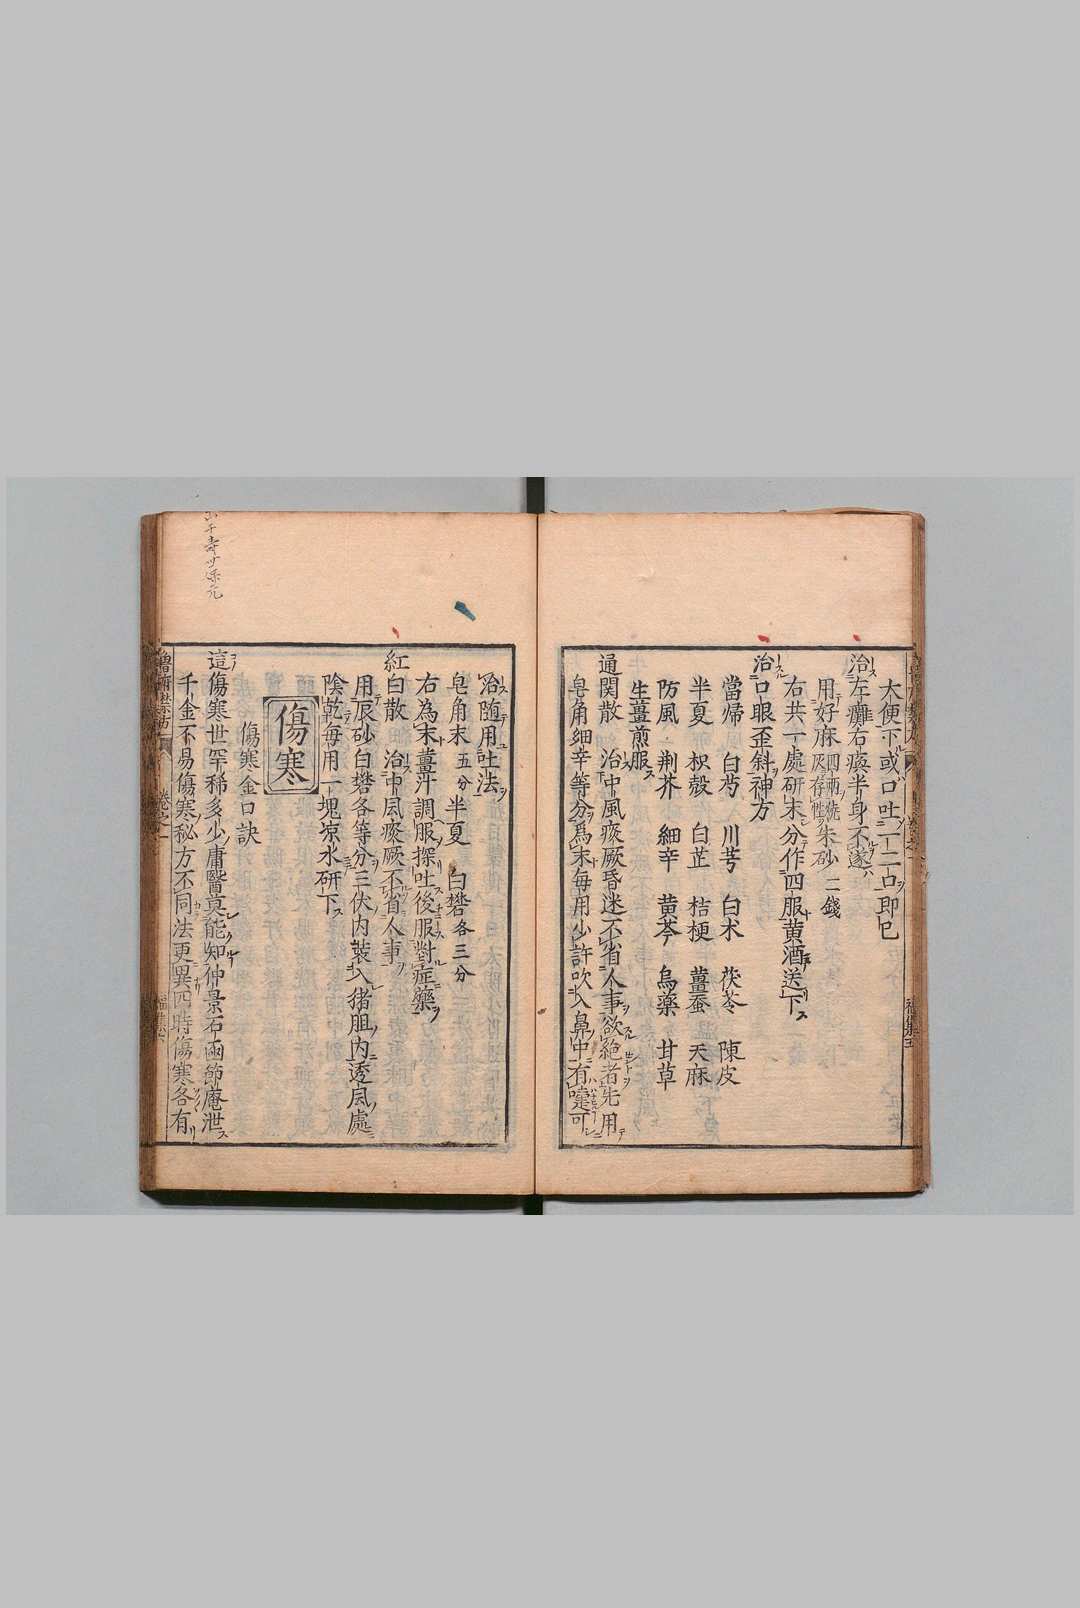 大便下或口吐一二口即已
治左癱右瘓半身不遂
用好麻四兩燒灰存性朱砂二錢
右共一處研末分作四服黃酒送下
治口眼歪斜神方
當帰 白芍 川芎 白术 茯苓 陳皮
半夏 枳殼 白芷 桔梗 薑蚕 天麻
防風 荆芥 細辛 黄芩 烏藥 甘草
生薑煎服
通関散 治中風痰厥昏迷不省人事欲絶者先用
皂角細辛等分為末每用少許吹入鼻中有嚏可
治随用吐法
皂角末五分半夏 白礬各三分
右為末薑汁調服探吐後服對症藥
紅白散 治中風痰厥不省人事
用辰砂白礬各等分三伏内裝入猪胆内透風處
陰乾每用一塊凉水研下
傷寒
傷寒金口訣
這傷寒世罕稀多少庸醫莫能知仲景石函節庵泄
千金不易傷寒秘方不同法更異四時傷寒各有
卷之一